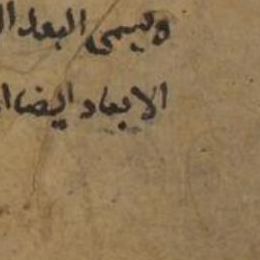 ويسمى البعد ا
الابعاد ايضا ا